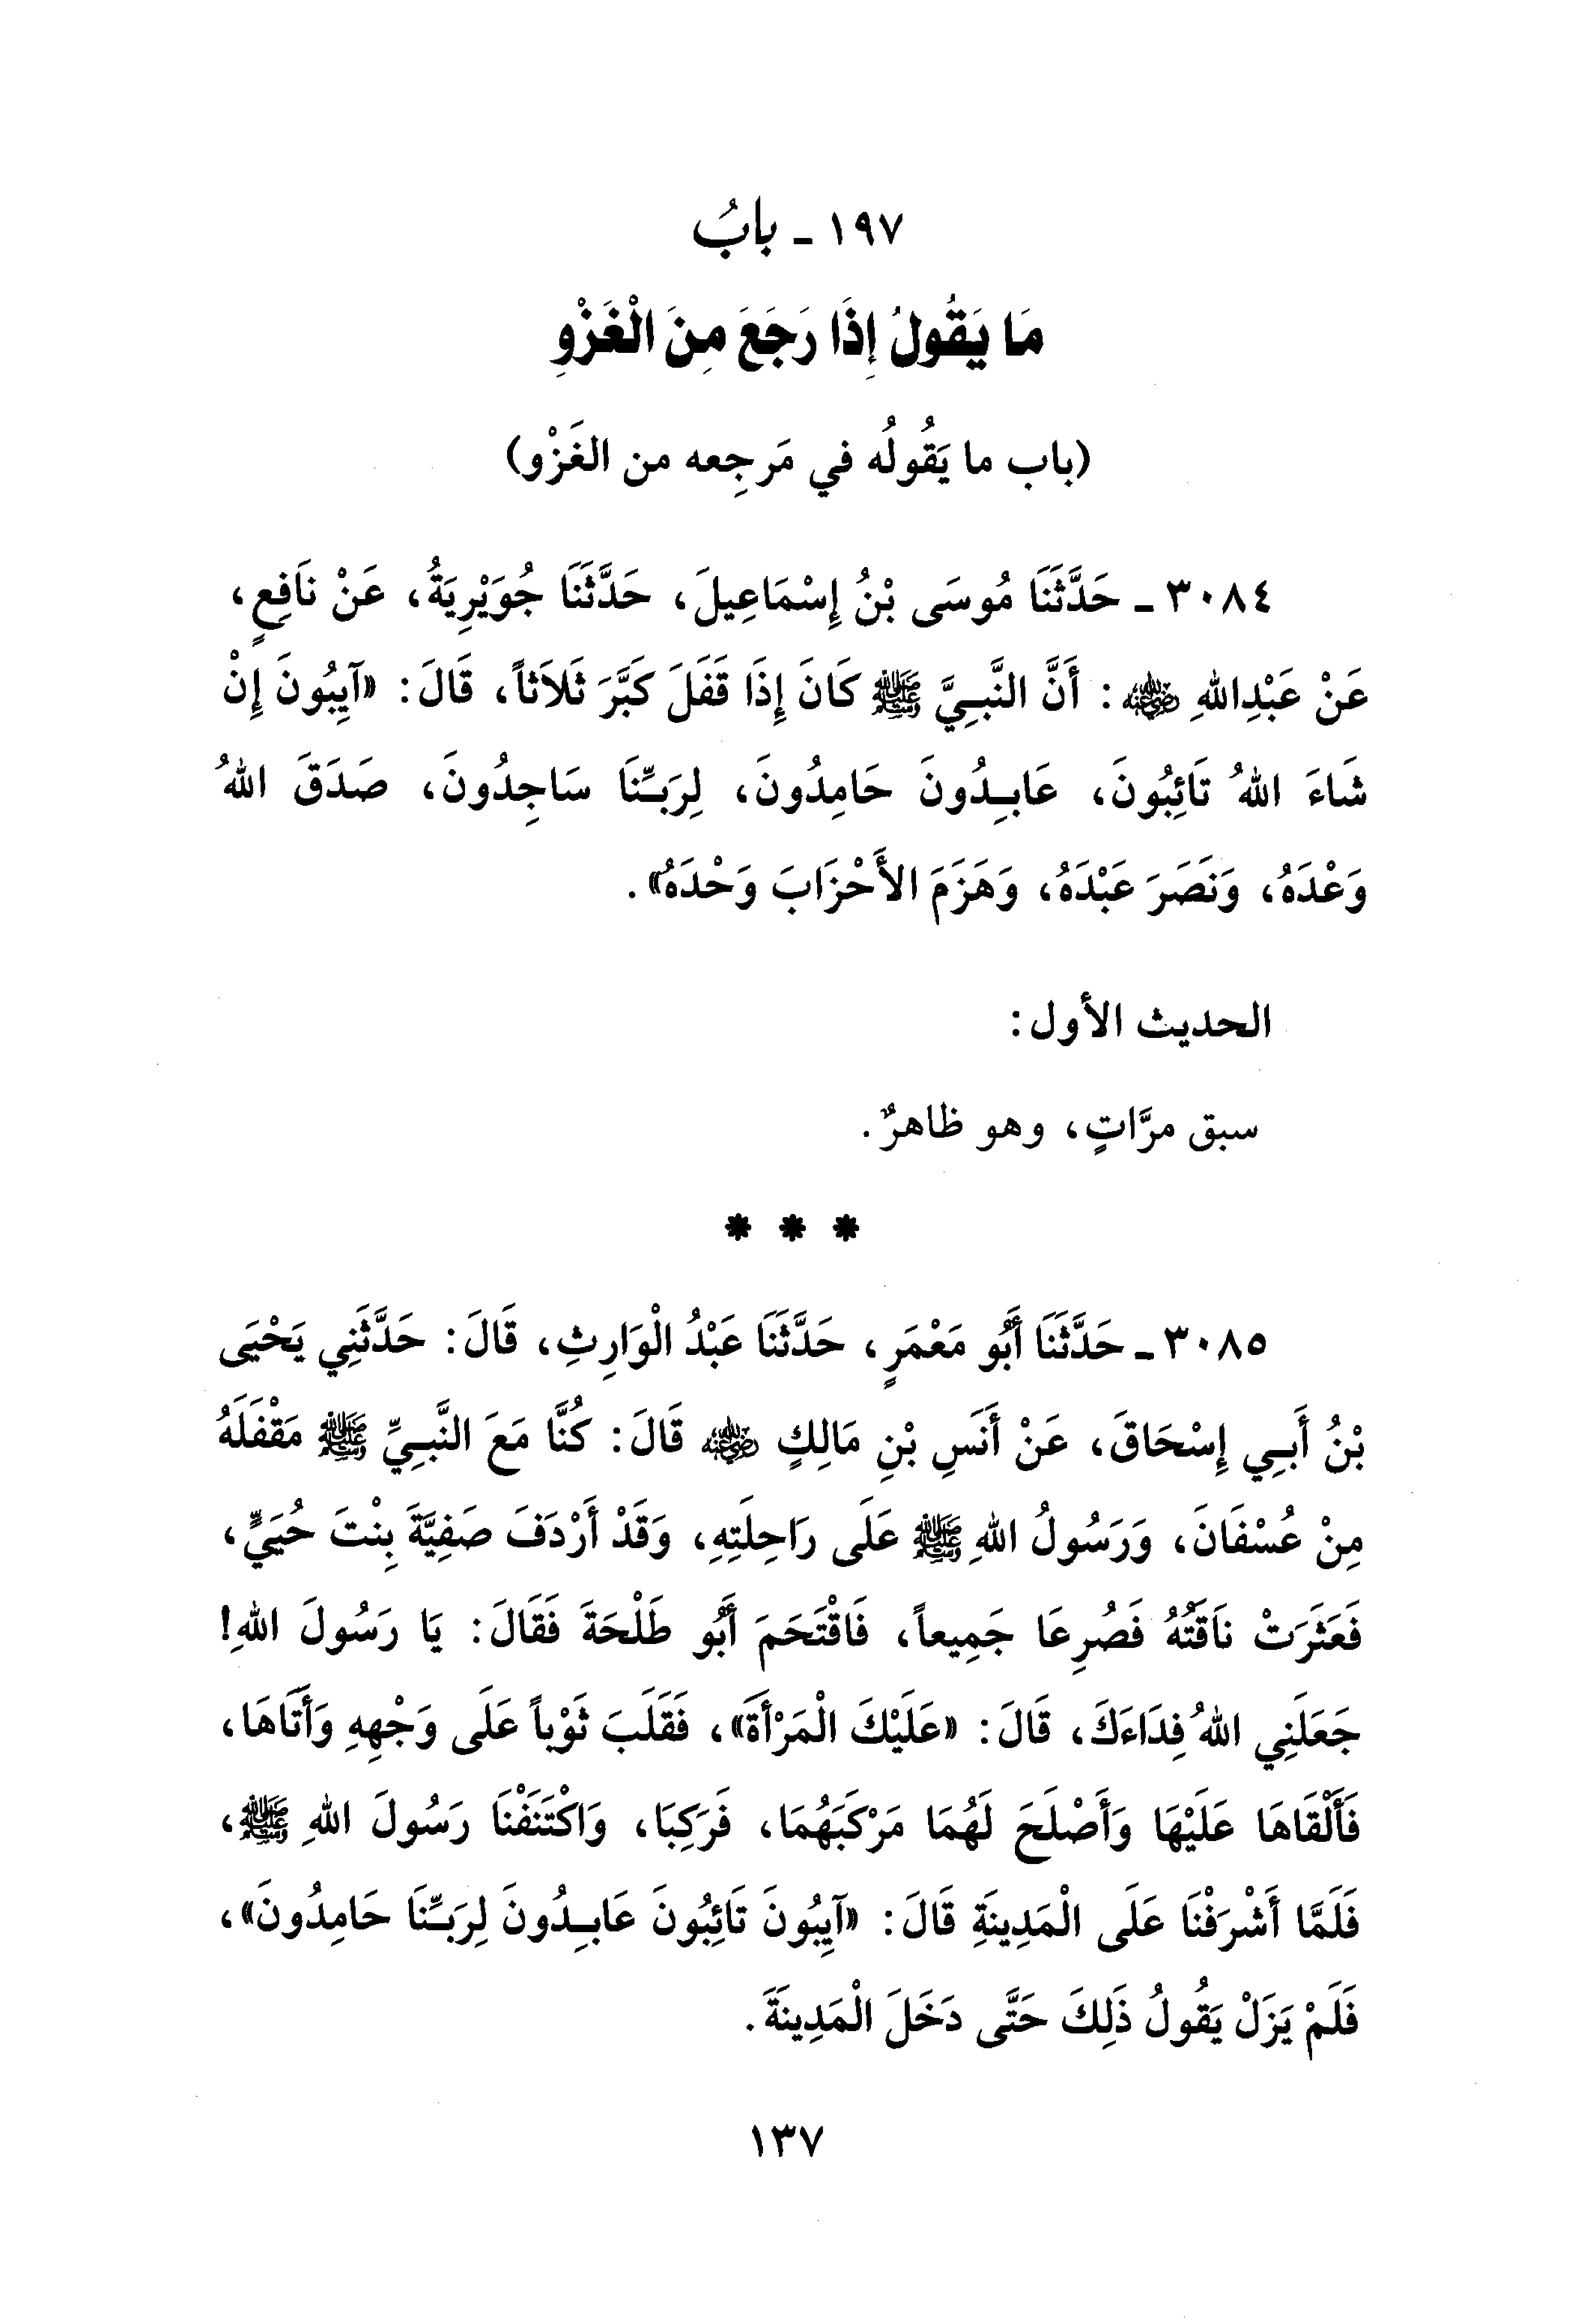 ١٩٧ - بابُ
مَا يَقُولُ إِذَا رَجَعَ مِنَ الْغَزْوِ
(باب ما يَقُولُه في مَرجِعه من الغَزْو)
٣٠٨٤ - حَدَّثَنَا مُوسَى بْنُ إِسْمَاعِيلَ، حَدَّثَنَا جُوَيْرِيَةُ، عَنْ نَافِعٍ،
عَنْ عَبْدِاللهِ رضي الله عنه: أَنَّ النَّبِيَّ ﷺ كَانَ إِذَا قَفَلَ كَبَّرَ ثَلاَثاً، قَالَ: «آيِبُونَ إِنْ
شَاءَ اللهُ تَائِبُونَ، عَابِدُونَ حَامِدُونَ، لِرَبِّنَا سَاجِدُونَ، صَدَقَ اللهُ
وَعْدَهُ، وَنَصَرَ عَبْدَهُ، وَهَزَمَ الأَحْزَابَ وَحْدَهُ».
الحديث الأول:
سبق مرَّاتٍ، وهو ظاهرٌ.
* * *
٣٠٨٥ - حَدَّثَنَا أَبُو مَعْمَرٍ، حَدَّثَنَا عَبْدُ الْوَارِثِ، قَالَ: حَدَّثَنِي يَحْيَى
بْنُ أَبِي إِسْحَاقَ، عَنْ أَنَسِ بْنِ مَالِكٍ رضي الله عنه قَالَ: كُنَّا مَعَ النَّبِيِّ ﷺ مَقْفَلَهُ
مِنْ عُسْفَانَ، وَرَسُولُ اللهِ ﷺ عَلَى رَاحِلَتِهِ، وَقَدْ أَرْدَفَ صَفِيَّةَ بِنْتَ حُيَيٍّ،
فَعَثَرَتْ نَاقَتُهُ فَصُرِعَا جَمِيعاً، فَاقْتَحَمَ أَبُو طَلْحَةَ فَقَالَ: يَا رَسُولَ اللهِ!
جَعَلَنِي اللهُ فِدَاءَكَ، قَالَ: «عَلَيْكَ الْمَرْأَةَ»، فَقَلَبَ ثَوْباً عَلَى وَجْهِهِ وَأَتَاهَا،
فَأَلْقَاهَا عَلَيْهَا وَأَصْلَحَ لَهُمَا مَرْكَبَهُمَا، فَرَكِبَا، وَاكْتَنَفْنَا رَسُولَ اللهِ ﷺ،
فَلَمَّا أَشْرَفْنَا عَلَى الْمَدِينَةِ قَالَ: «آيِبُونَ تَائِبُونَ عَابِدُونَ لِرَبِّنَا حَامِدُونَ»،
فَلَمْ يَزَلْ يَقُولُ ذَلِكَ حَتَّى دَخَلَ الْمَدِينَةَ.
١٣٧